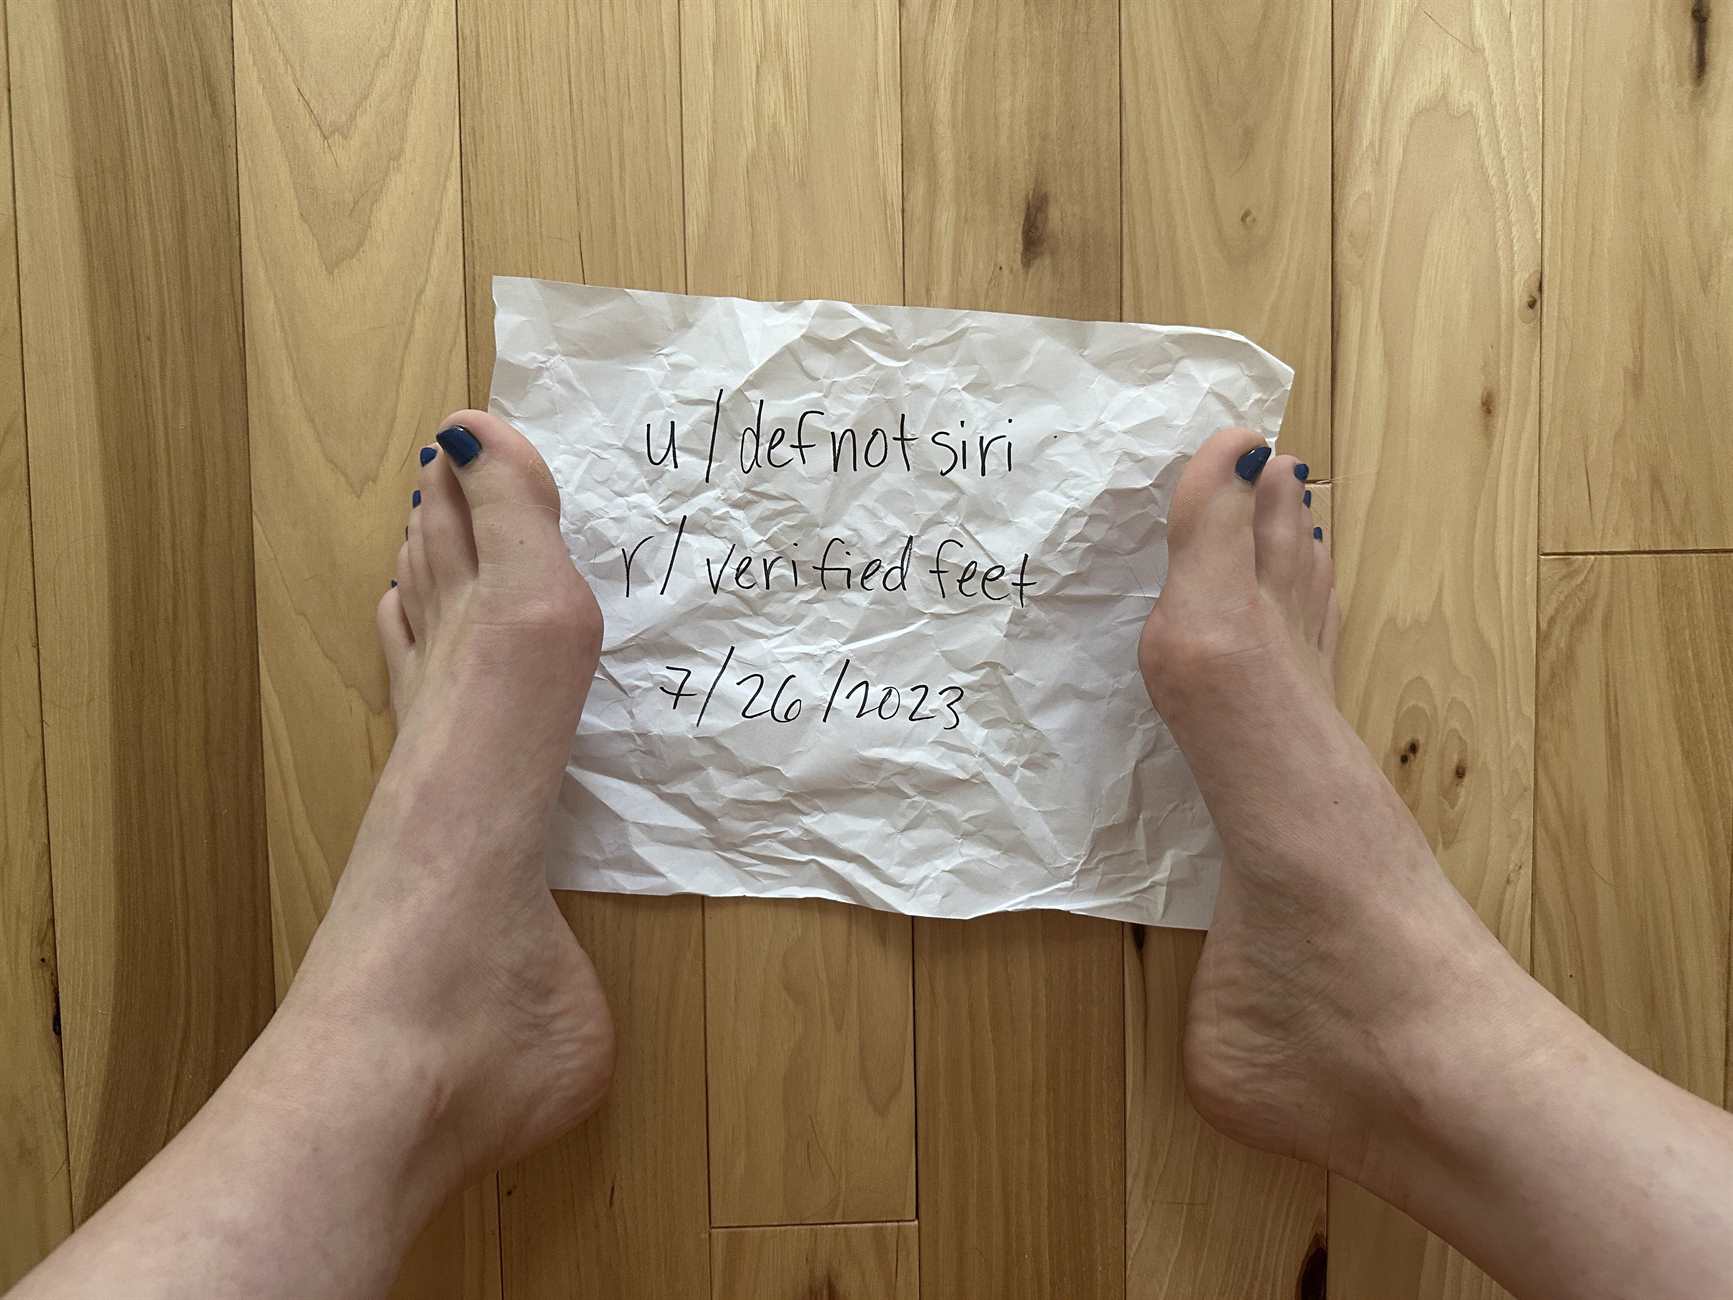 u/defnotsiri
r/verifiedfeet
7/26/2023